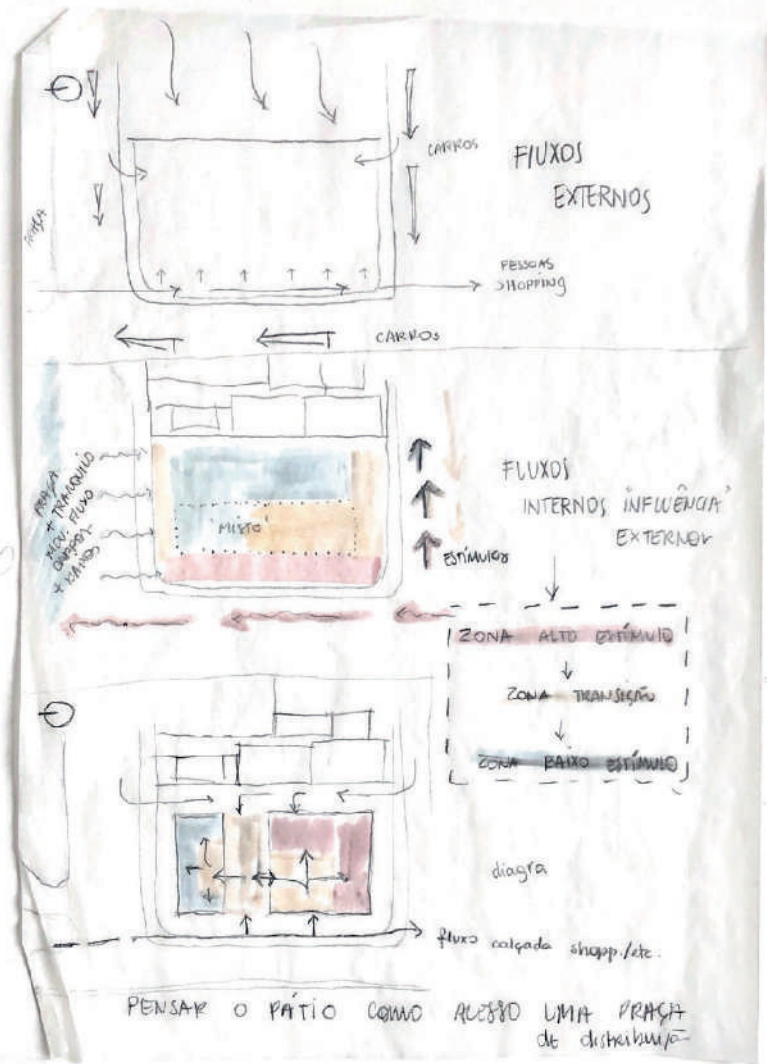 CARROS
FLUXOS
EXTERNOS
PRAÇA
PESSOAS
SHOPPING
CARROS
PRAÇA
+ TRANQUILO
MOV. FLUXO
+ CARROS
'MISTO'
ESTÍMULOS
FLUXOS
INTERNOS INFLUÊNCIA
EXTERNOS
ZONA ALTO ESTÍMULO
ZONA TRANSIÇÃO
ZONA BAIXO ESTÍMULO
diagra
fluxo calçada shopp./etc.
PENSAR O PÁTIO COMO ACESSO UMA PRAÇA
de distribuição